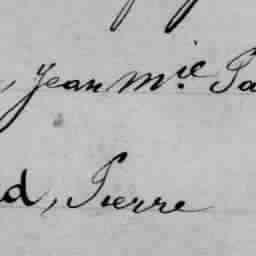 , Jean M.ie Pa
d, Pierre